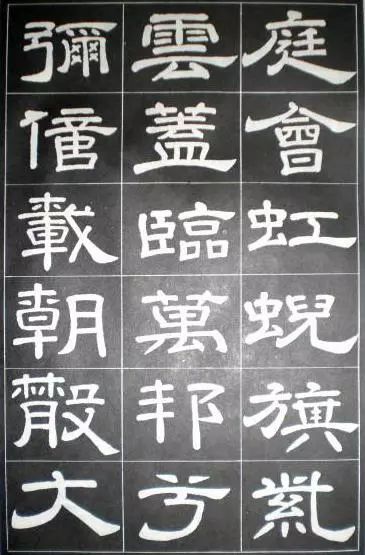 庭會虹蜺旗紫
雲蓋臨萬邦兮
彌億載朝散大